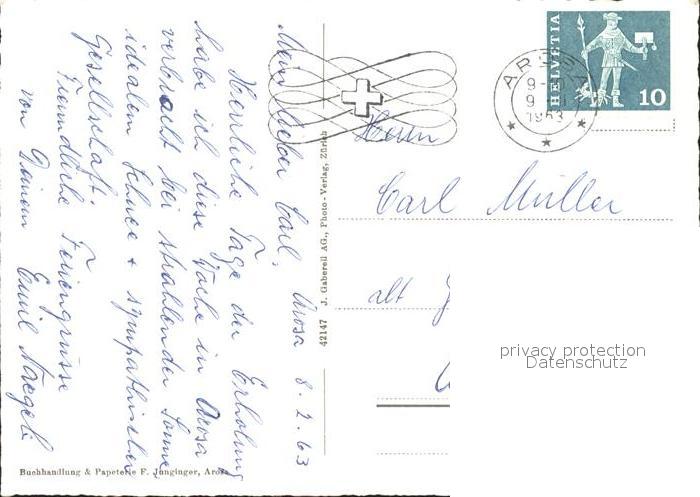 Mein lieber Carl, Arosa 8.2.63
Herrliche Tage der Erholung
habe ich diese Woche in Arosa
verbracht bei strahlender Sonne,
idealem Schnee + sympathischer
Gesellschaft.
Freundliche Feriengrüsse
von Deinem Emil Naegeli
Buchhandlung & Papeterie F. Junginger, Arosa
42147 J. Gaberell AG., Photo-Verlag, Zürich
HELVETIA
10
AROSA
1963
Herrn
Carl Müller
alt
privacy protection
Datenschutz